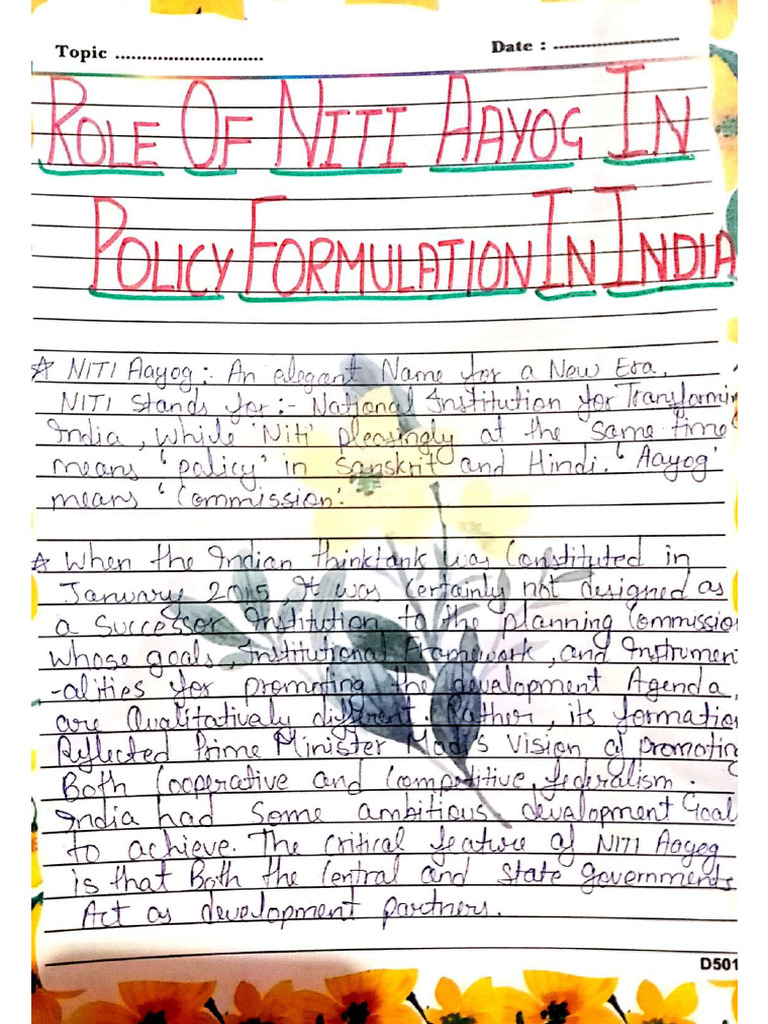 Topic ..............................
Date : ..............................
ROLE OF NITI AAYOG IN
POLICY FORMULATION IN INDIA
☆ NITI Aayog:- An elegant Name for a New Era.
NITI stands for:- National Institution for Transformin
India, while 'Niti' pleasingly at the same time
means 'policy' in Sanskrit and Hindi. 'Aayog'
means 'Commission'.
☆ When the Indian thinktank was Constituted in
January 2015, It was certainly not designed as
a Successor Institution to the planning Commission
whose goals, Institutional Framework, and Instrument
-alities for promoting the development Agenda,
are Qualitatively different. Rather, its formation
Reflected Prime Minister Modi's Vision of promoting
Both Cooperative and Competitive federalism.
India had Some ambitious development Goal
to achieve. The Critical feature of NITI Aayog
is that Both the Central and State governments
Act as development partners.
D501